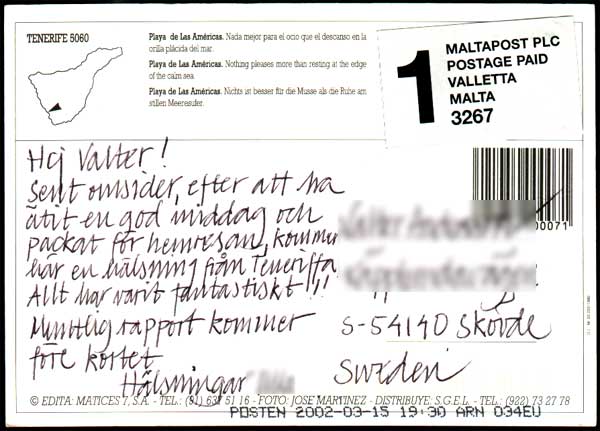 TENERIFE 5060
Playa de Las Américas. Nada mejor para el ocio que el descanso en la
orilla plácida del mar.
Playa de Las Américas. Nothing pleases more than resting at the edge
of the calm sea.
Playa de Las Américas. Nichts ist besser für die Musse als die Ruhe am
stillen Meeresufer.
1
MALTAPOST PLC
POSTAGE PAID
VALLETTA
MALTA
3267
Hej Valter!
Sent omsider, efter att ha
ätit en god middag och
packat för hemresan, kommer
här en hälsning från Teneriffa
Allt har varit fantastiskt!!!
Muntlig rapport kommer
före kortet
Hälsningar
00071
S-54140 Skövde
Sweden
© EDITA: MATICES 7, S.A. - TEL.: (91) 637 51 16 - FOTO: JOSE MARTINEZ - DISTRIBUYE: S.G.E.L. - TEL.: (922) 73 27 78
POSTEN 2002-03-15 19:30 ARN 034EU